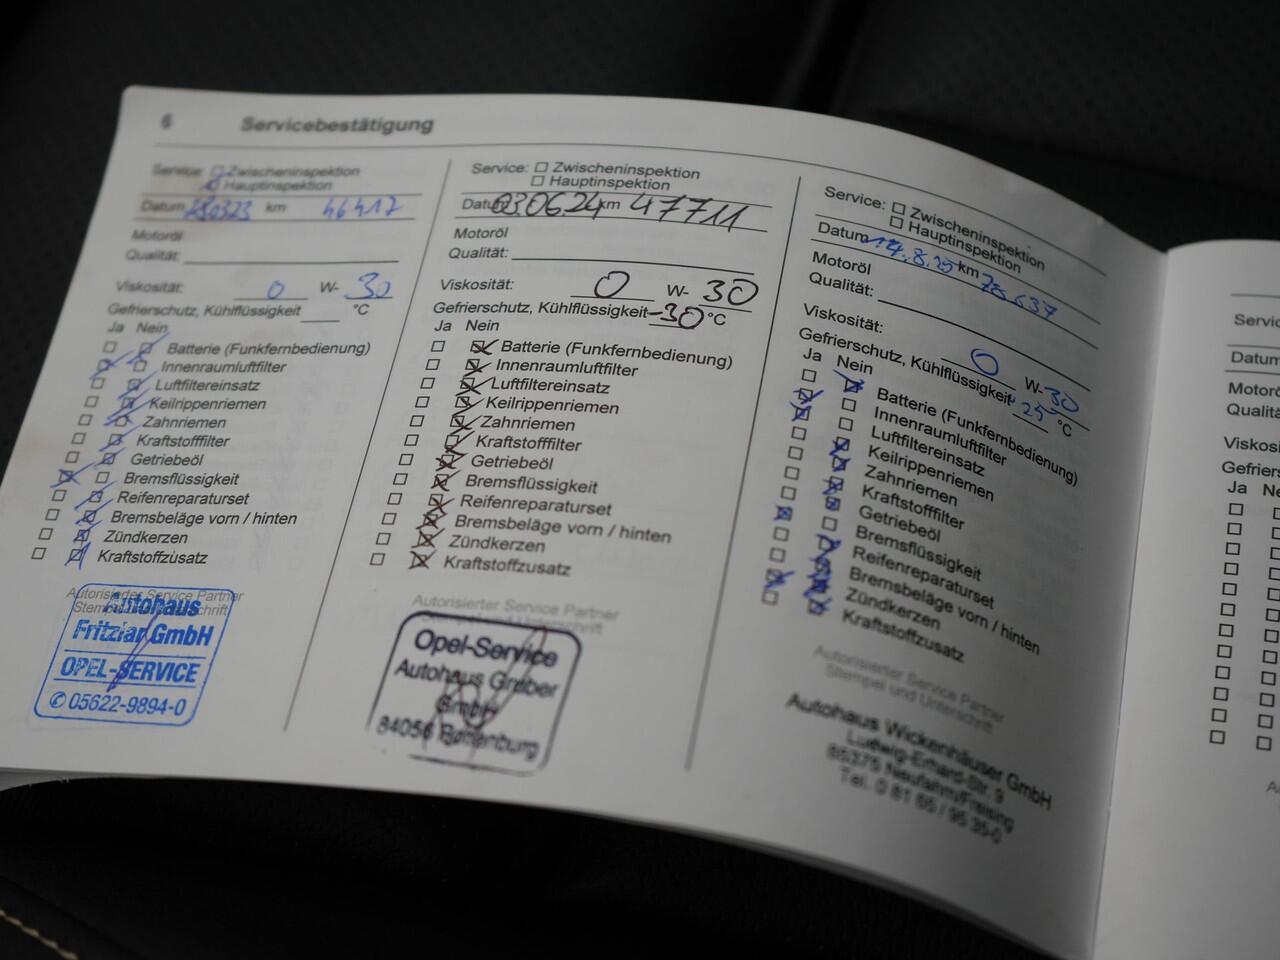 6 Servicebestätigung
Service: Zwischeninspektion
Hauptinspektion
Datum 280323 km 46417
Motoröl
Qualität:
Viskosität: 0 W- 30
Gefrierschutz, Kühlflüssigkeit °C
Ja Nein
Batterie (Funkfernbedienung)
Innenraumluftfilter
Luftfiltereinsatz
Keilrippenriemen
Zahnriemen
Kraftstofffilter
Getriebeöl
Bremsflüssigkeit
Reifenreparaturset
Bremsbeläge vorn / hinten
Zündkerzen
Kraftstoffzusatz
Autorisierter Service Partner
Stempel und Unterschrift
Autohaus
Fritzlar GmbH
OPEL-SERVICE
✆ 05622-9894-0
Service: Zwischeninspektion
Hauptinspektion
Datum 030624 km 47711
Motoröl
Qualität:
Viskosität: 0 W- 30
Gefrierschutz, Kühlflüssigkeit -30 °C
Ja Nein
Batterie (Funkfernbedienung)
Innenraumluftfilter
Luftfiltereinsatz
Keilrippenriemen
Zahnriemen
Kraftstofffilter
Getriebeöl
Bremsflüssigkeit
Reifenreparaturset
Bremsbeläge vorn / hinten
Zündkerzen
Kraftstoffzusatz
Autorisierter Service Partner
Stempel und Unterschrift
Opel-Service
Autohaus Gruber
GmbH
84056 Rottenburg
Service: Zwischeninspektion
Hauptinspektion
Datum 14.8.25 km
Motoröl
Qualität:
Viskosität: 0 W- 30
Gefrierschutz, Kühlflüssigkeit -25 °C
Ja Nein
Batterie (Funkfernbedienung)
Innenraumluftfilter
Luftfiltereinsatz
Keilrippenriemen
Zahnriemen
Kraftstofffilter
Getriebeöl
Bremsflüssigkeit
Reifenreparaturset
Bremsbeläge vorn / hinten
Zündkerzen
Kraftstoffzusatz
Autorisierter Service Partner
Stempel und Unterschrift
Autohaus Wickenhäuser GmbH
Ludwig-Erhard-Str. 9
85375 Neufahrn/Freising
Tel. 0 81 65 / 95 35-0
Servic
Datum
Motorö
Qualitä
Viskosi
Gefriers
Ja Ne